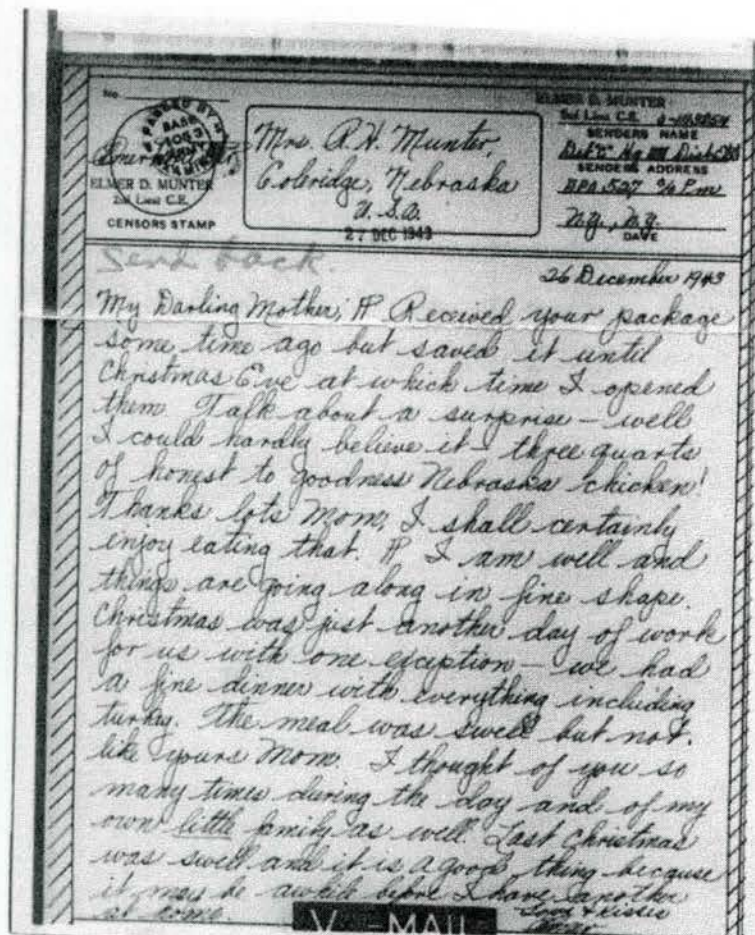 No.
PASSED BY
BASE
1053
ARMY
ELMER D. MUNTER
2nd Lieut C.E.
CENSORS STAMP
Mrs. R.H. Munter,
Coleridge, Nebraska
U.S.A.
27 DEC 1943
ELMER D. MUNTER
2nd Lieut C.E.
SENDERS NAME
SENDERS ADDRESS
APO 527 % P.M.
N.Y., N.Y.
DATE
Send back.
26 December 1943
My Darling Mother; ¶ Received your package
some time ago but saved it until
Christmas Eve at which time I opened
them. Talk about a surprise - well
I could hardly believe it - three quarts
of honest to goodness Nebraska chicken!
Thanks lots Mom, I shall certainly
enjoy eating that. ¶ I am well and
things are going along in fine shape.
Christmas was just another day of work
for us with one exception - we had
a fine dinner with everything including
turky. The meal was swell but not
like yours Mom. I thought of you so
many times during the day and of my
own little family as well. Last Christmas
was swell and it is a good thing because
it may be awhile before I have another
at home.
Love & Kisses
Elmer
V -MAIL